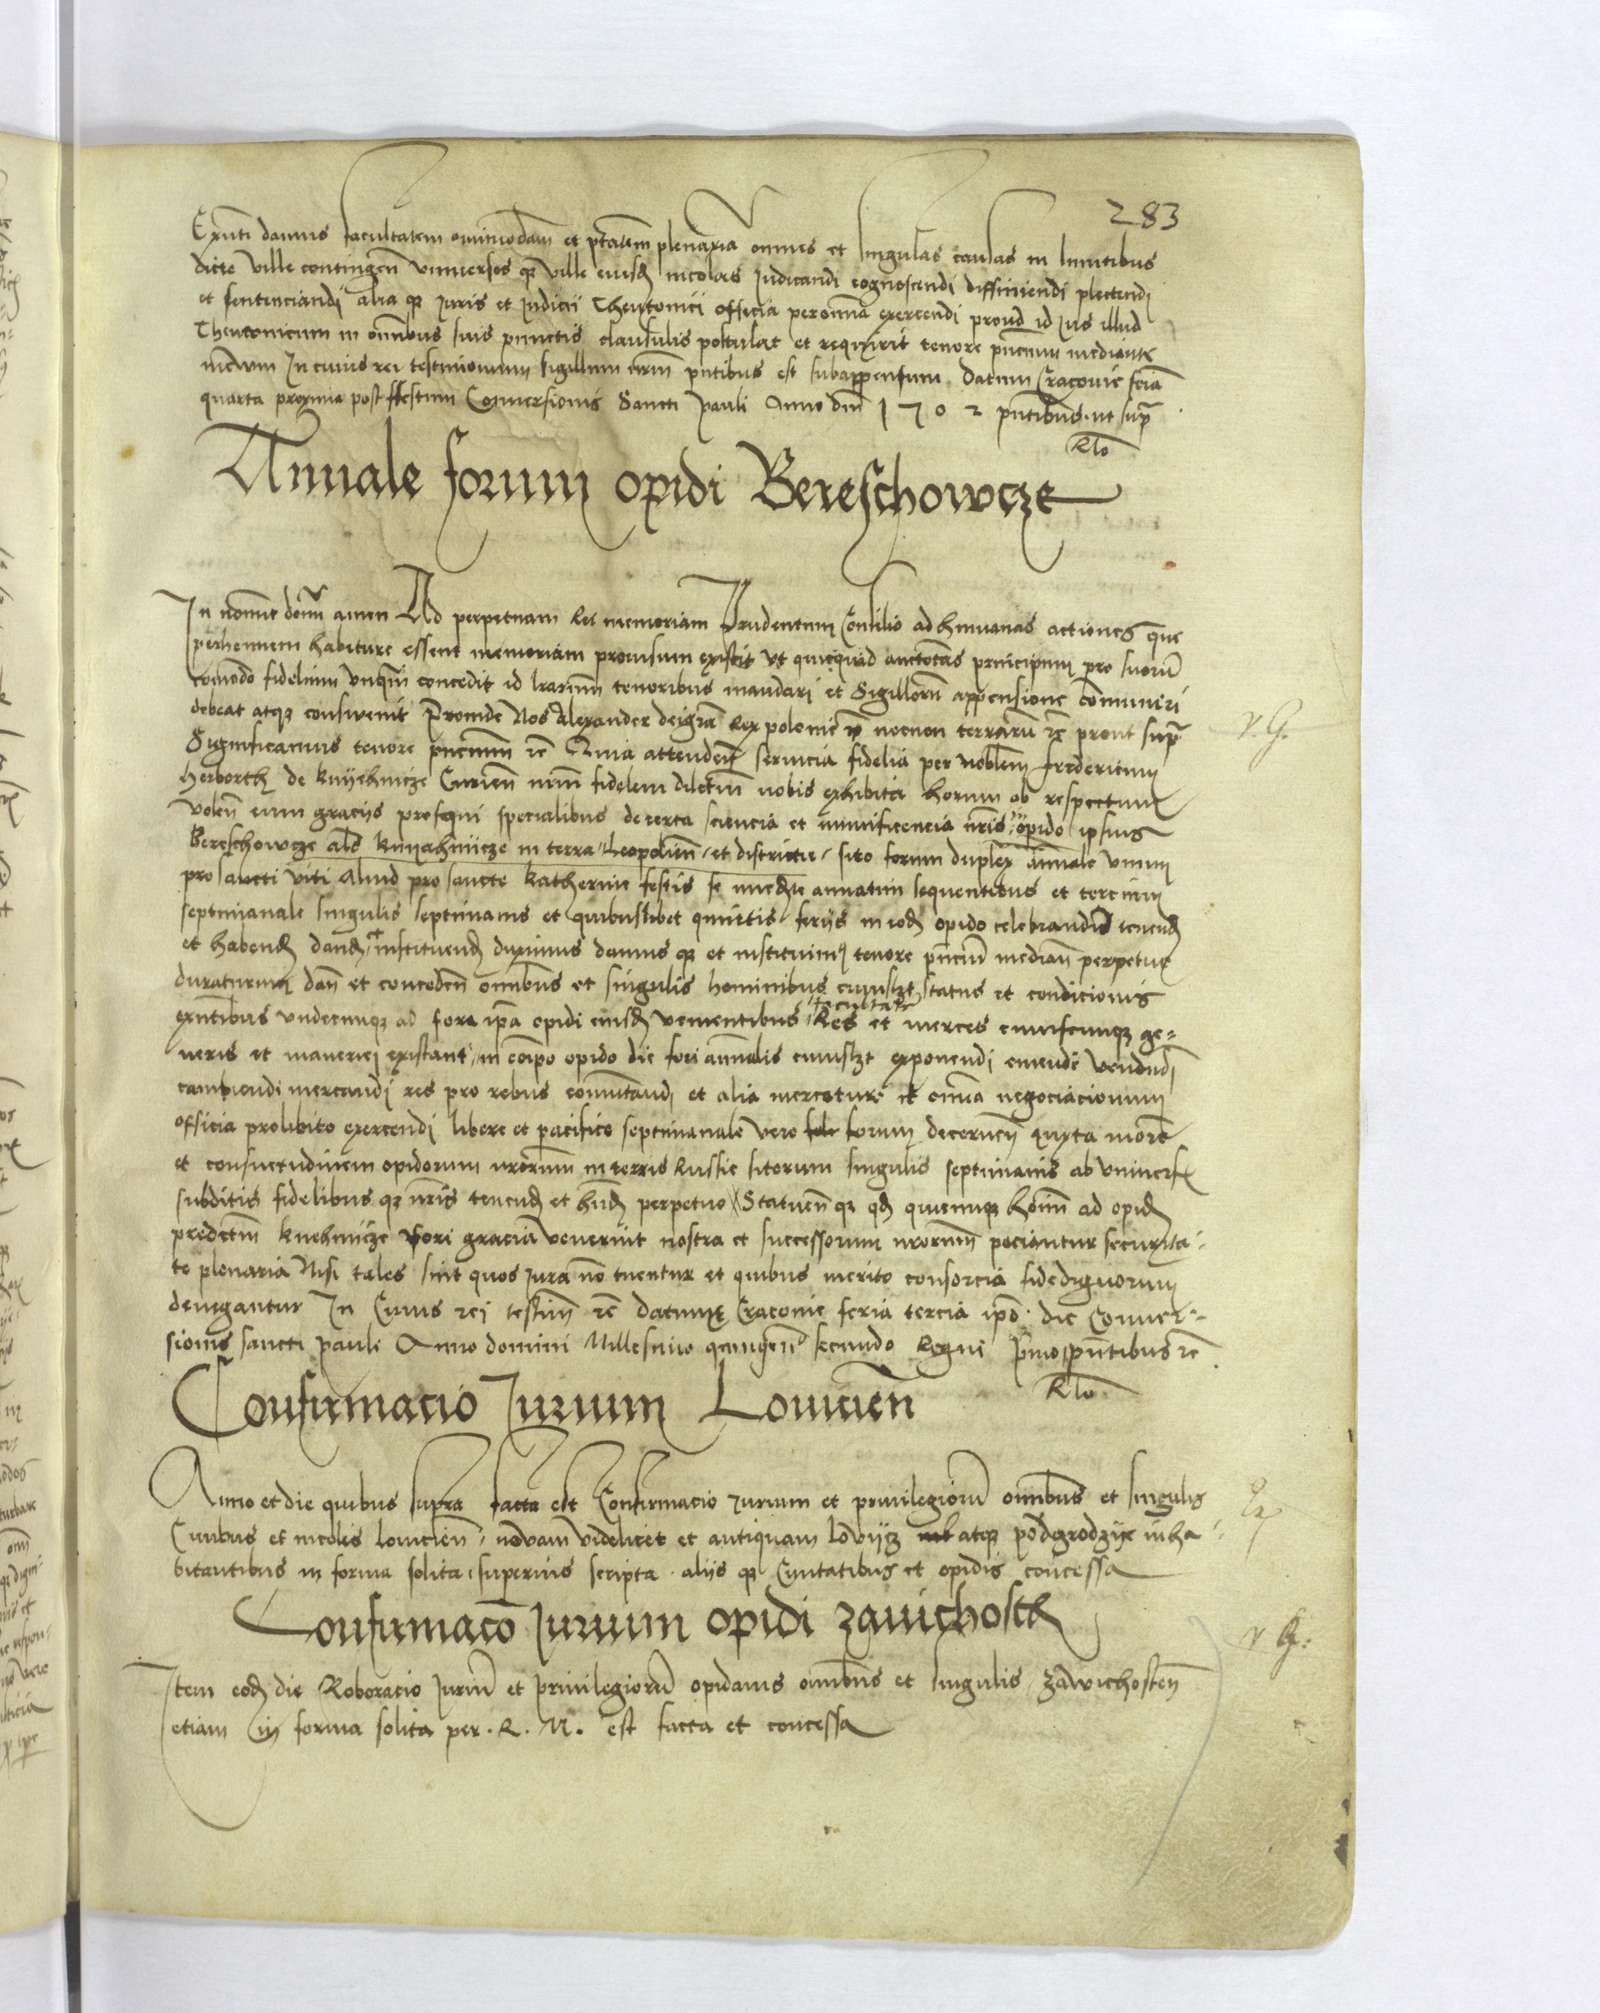 283
Exnti damus facultatem omnimodam et ptatem plenaria omnes et singulas causas in limitibus
dicte ville contingen universos qz ville eiusd incolas Iudicandi cognoscendi diffiniendi plectendi
et sentenciandi alia qz Iuris et Iudicii Theutonici officia peromnia exercendi proud id Ius illud
Theutonicum in omnibus suis punctis clausulis postulat et requirit tenore pncium mediante
In cuius rei testimonium sigillum nrm pntibus est subappensum Datum Cracovie feria
quarta proxima post ffestum Conversionis Sancti Pauli Anno dni 1502 pntibus ut supra
Annale forum opidi Bereschowcze
In nomine domi amen Ad perpetuam Rei memoriam Prudentum Consilio ad humanas actiones que
perhennem habiture essent memoriam provisum existit ut quicquid auctoritas principum pro suorum
comodo fidelium unqm concedit id lrarum tenoribus mandari et Sigillorum appensione communiri
debeat atqz consuevit Proinde Nos Alexander dei gra Rex polonie necnon terrarum rc prout supra
Significamus tenore pncium rc Quia attenden servicia fidelia per noblem fredericum
Herborth de Knyehnicze Curien nrm fidelem dilectum nobis exhibita horum ob respectum
volen eum graciis prosequi specialibus de certa sciencia et munificencia nris opido ipsius
Bereschowcze als Knyahnicze in terra Leopolien et districtu sito forum duplex annale unum
pro sancti Viti Aliud pro sancte Katherine festis se annatim sequentibus et tercium
septimanale singulis septimanis et quibuslibet quintis feriis in eod opido celebrandi tenend
et habend dand et instituend duximus damus qz et instituimus tenore pncium median perpetue
duraturum dan et conceden omnibus et singulis hominibus cuiuslzt status et condicionis
exntibus undecumqz ad fora ipsa opidi eiusd venientibus facultatem Res et merces cuiuscumqz ge-
neris et maneriei existant in eoipo opido die fori annalis cuiuslzt exponendi emendi vendendi
cambiendi mercandi res pro rebus comutand et alia mercature et omnia negociacionum
officia prolibito exercendi libere et pacifice septimanale vero forum decernen iuxta morem
et consuetudinem opidorum nrorum in terris Russie sitorum singulis septimanis ab universis
subditis fidelibus qz nris tenend et hnd perpetuo Statuen qz qd quicumqz hoim ad opid
predictum Knehnicze fori gracia venerint nostra et successorum nrorum pociantur securita-
te plenaria Nisi tales sint quos Iura no tuentur et quibus merito consorcia fidedignorum
denegantur In Cuius rei testim rc Datum Cracovie feria tercia ipo die Conver-
sionis sancti pauli Anno domini Millesimo quingen secundo Regni primo pntibus rc
Confirmacio Iurium Lovicien
Anno et die quibus supra facta est Confirmacio Iurium et privilegiorum omnibus et singulis
Civibus et incolis Lovicien novam videlicet et antiquam Lovycz atqz podgrodzye inha-
bitantibus in forma solita superius scripta aliis qz Civitatibus et opidis concessa
Confirmaco Iurium opidi Zavichosth
Item eod die Roboracio Iurium et privilegiorum opidanis omnibus et singulis Zawichosten
etiam in forma solita per R. M. est facta et concessa